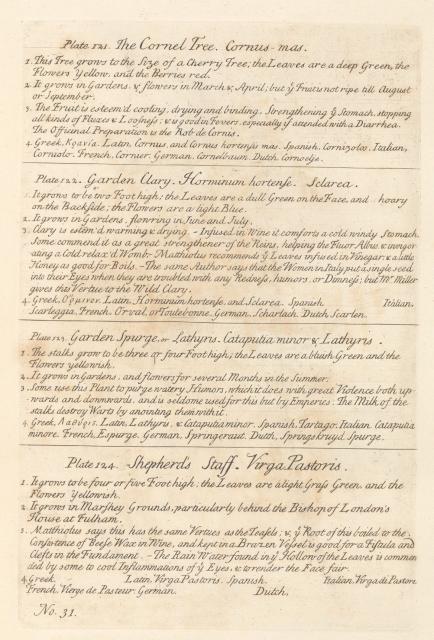 Plate 121. The Cornel Tree. Cornus mas.
1. This Tree grows to the Size of a Cherry Tree; the Leaves are a deep Green, the
Flowers Yellow, and the Berries red.
2. It grows in Gardens, & flowers in March & April; but ye Fruit is not ripe till August
or September.
3. The Fruit is esteem'd cooling, drying and binding. Strengthening ye Stomach, stopping
all kinds of Fluxes & Loosness; & is good in Fevers, especially if attended with a Diarrhea.
The Officinal Preparation is the Rob de Cornis.
4. Greek, Κρανία. Latin, Cornus, and Cornus hortensis mas. Spanish, Cornizolos. Italian,
Corniolo. French, Cornier. German, Cornelbaum. Dutch, Cornoelge.
Plate 122. Garden Clary. Horminum hortense. Sclarea.
1. It grows to be two Foot high; the Leaves are a dull Green on the Face, and hoary
on the Backside; the Flowers are a light Blue.
2. It grows in Gardens, flowring in June and July.
3. Clary is esteem'd warming & drying. - Infused in Wine it comforts a cold windy Stomach.
Some commend it as a great strengthener of the Reins, helping the Fluor Albus & invigor
ating a Cold relax'd Womb. Matthiolus recommends ye Leaves infused in Vinegar & a little
Honey as good for Boils. - The same Author says that the Women in Italy put a single seed
into their Eyes when they are troubled with any Redness, humors, or Dimness; but Mr. Miller
gives this Vertue to the Wild Clary.
4. Greek, Ὅρμινον. Latin, Horminum hortense, and Sclarea. Spanish. Italian,
Scarleggia. French, Orval, or Toutebonne. German, Scharlach. Dutch, Scarlen.
Plate 123. Garden Spurge, or Lathyris. Cataputia minor & Lathyris.
1. The stalks grow to be three or four Foot high; the Leaves are a bluish Green and the
Flowers yellowish.
2. It grows in Gardens, and flowers for several Months in the Summer.
3. Some use this Plant to purge watery Humors, which it does with great Violence both up-
wards and downwards, and is seldome used for this but by Emperics. The Milk of the
stalks destroy Warts by anointing them with it.
4. Greek, Λαθυρις. Latin, Lathyris, & Cataputia minor. Spanish, Tartago. Italian, Cataputia
minore. French, Espurge. German, Springeraut. Dutch, Springkruyd, Spurge.
Plate 124. Shepherds Staff. Virga Pastoris.
1. It grows to be four or five Foot high; the Leaves are a light Grass Green, and the
Flowers Yellowish.
2. It grows in Marshey Grounds, particularly behind the Bishop of London's
House at Fulham.
3. Matthiolus says this has the same Vertues as the Teasels; & ye Root of this boiled to the
Consistence of Beese Wax in Wine, and kept in a Brazen Vessel is good for a Fistula and
Clefts in the Fundament. - The Rain Water found in ye Hollow of the Leaves is commen
ded by some to cool Inflammations of ye Eyes, & to render the Face fair.
4. Greek. Latin, Virga Pastoris. Spanish. Italian, Virga de Pastore
French, Vierge de Pasteur. German. Dutch,
No. 31.